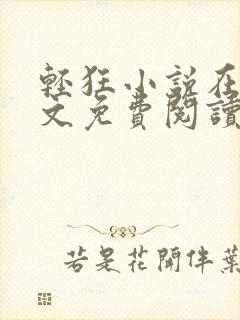 輕狂小說在
文免費閱讀
若是花開伴葉